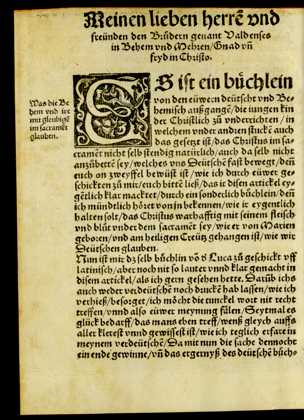 Meinen lieben herrē vnd
freünden den Brüdern genant Valdenses
in Behem vnd Mehren/ Gnad vñ
fryd in Christo.
Was die Be
hem vnd ire
mit gleubigē
im sacramēt
glauben.
ES ist ein büchlein
von den eüwern deütsch vnd Be
hemisch auß gangē/ die iungen kin
der Christlich zů vnderrichten/ in
welchem vnder andren stuck auch
das gesetzt ist/ das Christus im sa-
cramēt nicht selb stendig natürlich/ auch da selb nicht
anzůbettē sey/ welchs vns Deütschē fast bewegt/ dañ
euch on zweyffel bewüst ist/ wie ich durch eüwer ge-
schickten zů mir/ euch bittē ließ/ das ir disen artickel ey
gētlich klar macktet/ durch ein sonderlich büchlin/ den
ich mündtlich hört von jn bekennen/ wie ir eygentlich
halten solt/ das Christus warhafftig mit seinem fleisch
vnd blůt vnder dem sacramēt sey/ wie er von Marien
geborn/ vnd am heiligen Creütz gehangen ist/ wie wir
Deütschen glauben.
Nun ist mir dz selb büchlin vō d Luca zů geschickt vff
latinisch/ aber noch nit so lauter vnnd klar gemacht in
disem artickel/ als ich gern gesehen hette. Darūb ichs
auch weder verdeütschē noch druckē hab lassen/ wie ich
verhieß/ besorget/ ich möcht die tunckel wort nit recht
treffen/ vnnd also eüwer meynung fälen/ Seytmal es
glück bedarff/ das mans eben treff/ wenß gleych auffs
aller klerest vnd gewissest ist/ wie ich teglich erfar in
meynem verdeütschē/ Da mit nun die sache dennocht
ein ende gewinne/ vñ das ergernyß des deütschē büchs